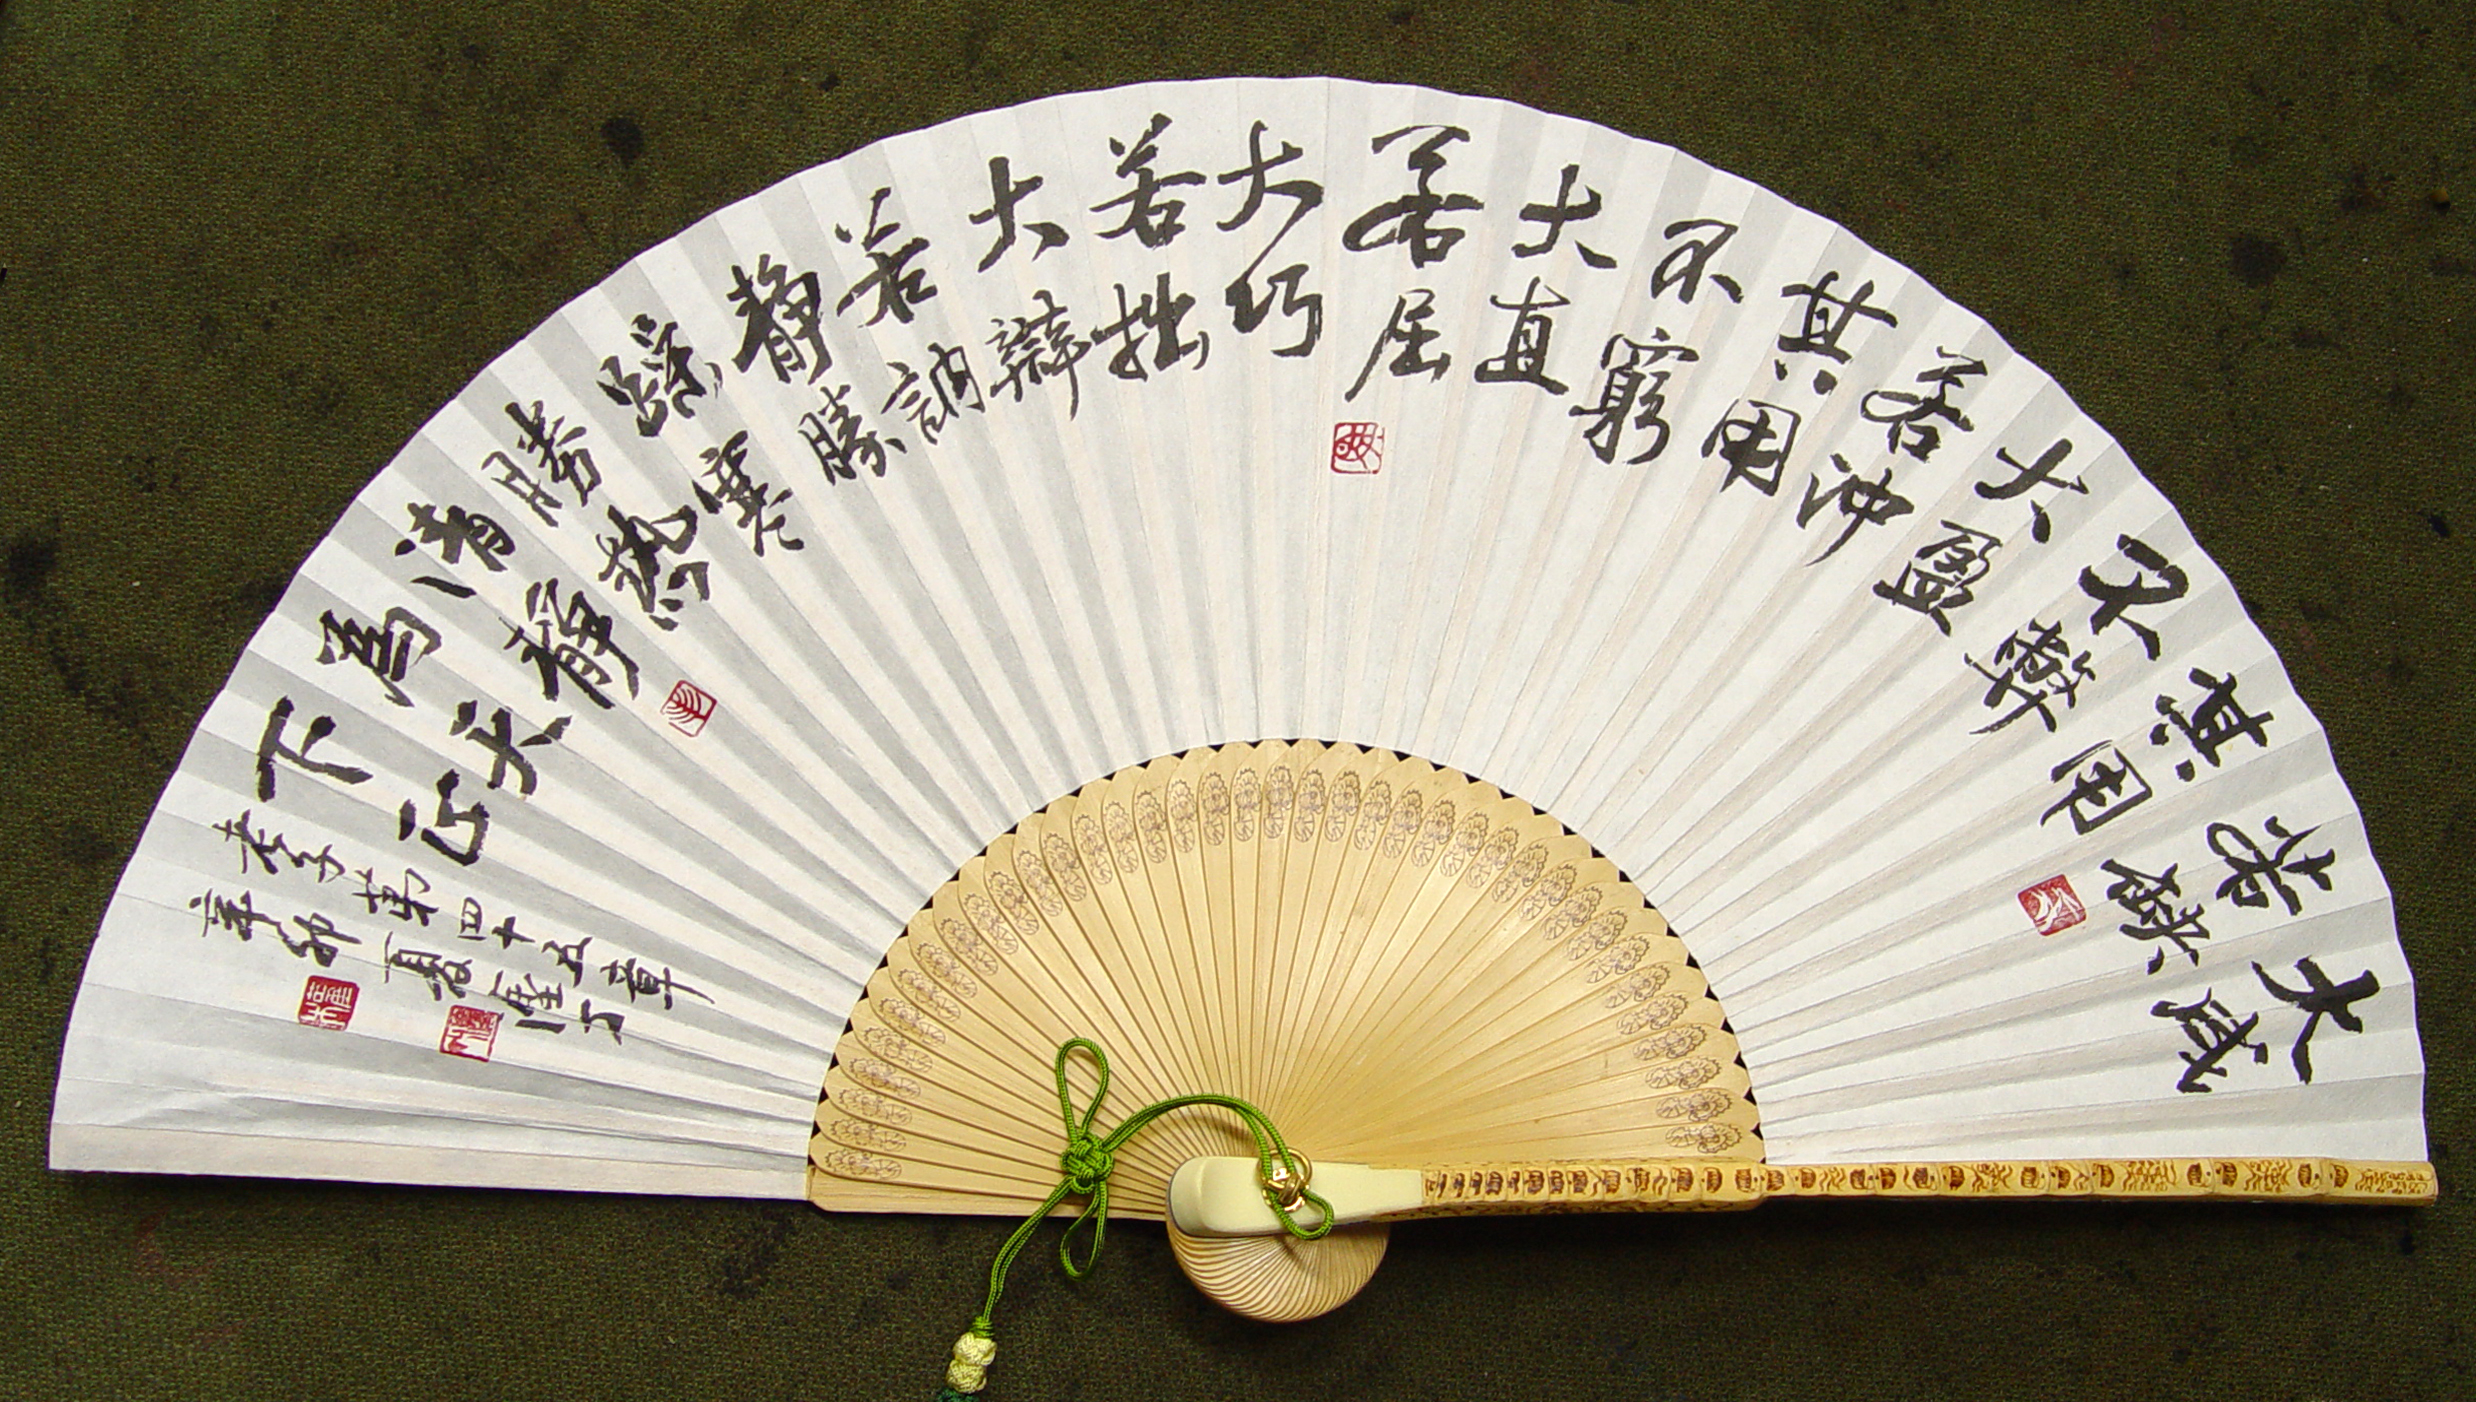 大盛
若缺
其用
不弊
大盈
若沖
其用
不窮
大直
若屈
大巧
若拙
大辯
若訥
靜勝
躁寒
勝熱
清靜
為天
下正
老子第四十五章
辛卯夏